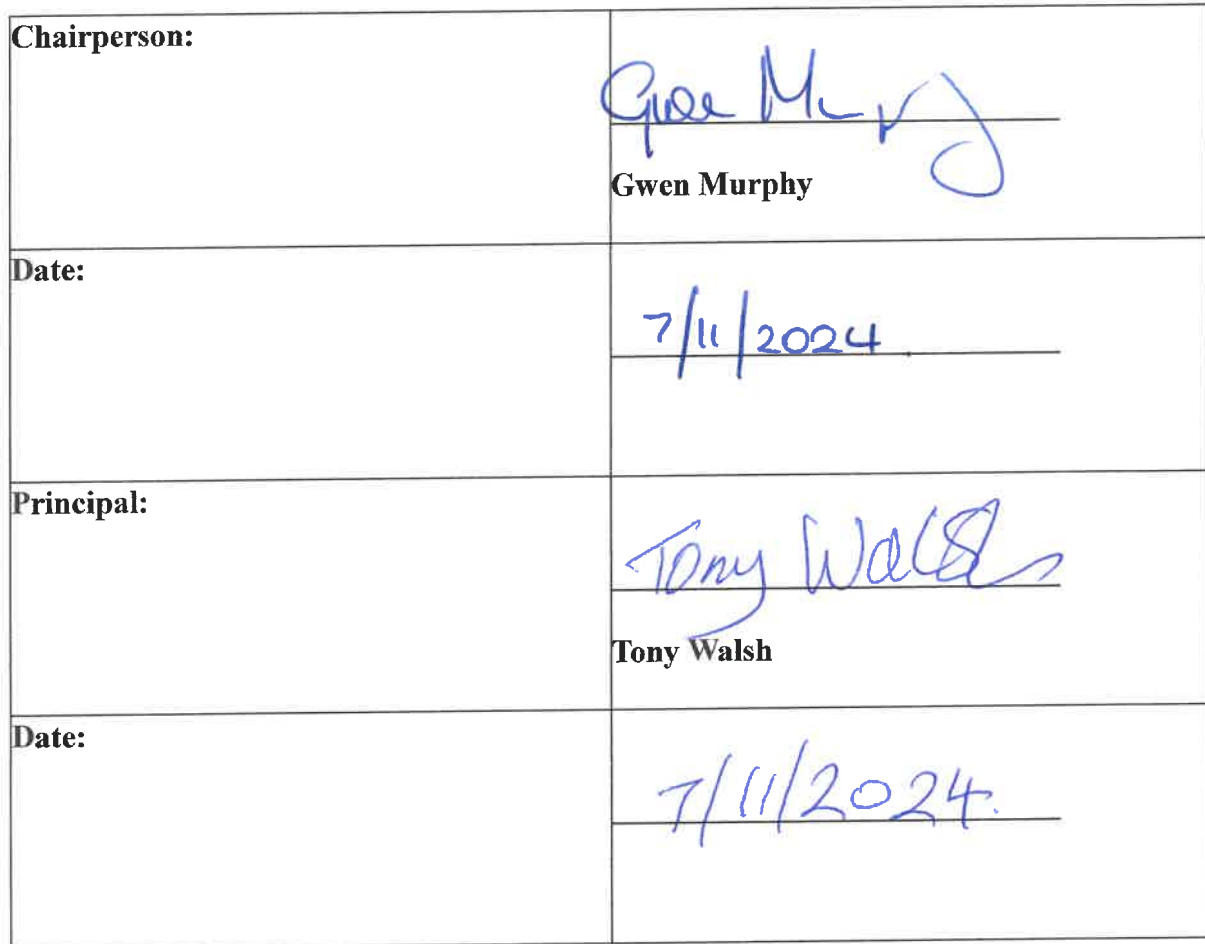 Chairperson:
Gwen Murphy
Gwen Murphy
Date:
7/11/2024
Principal:
Tony Walsh
Tony Walsh
Date:
7/11/2024.